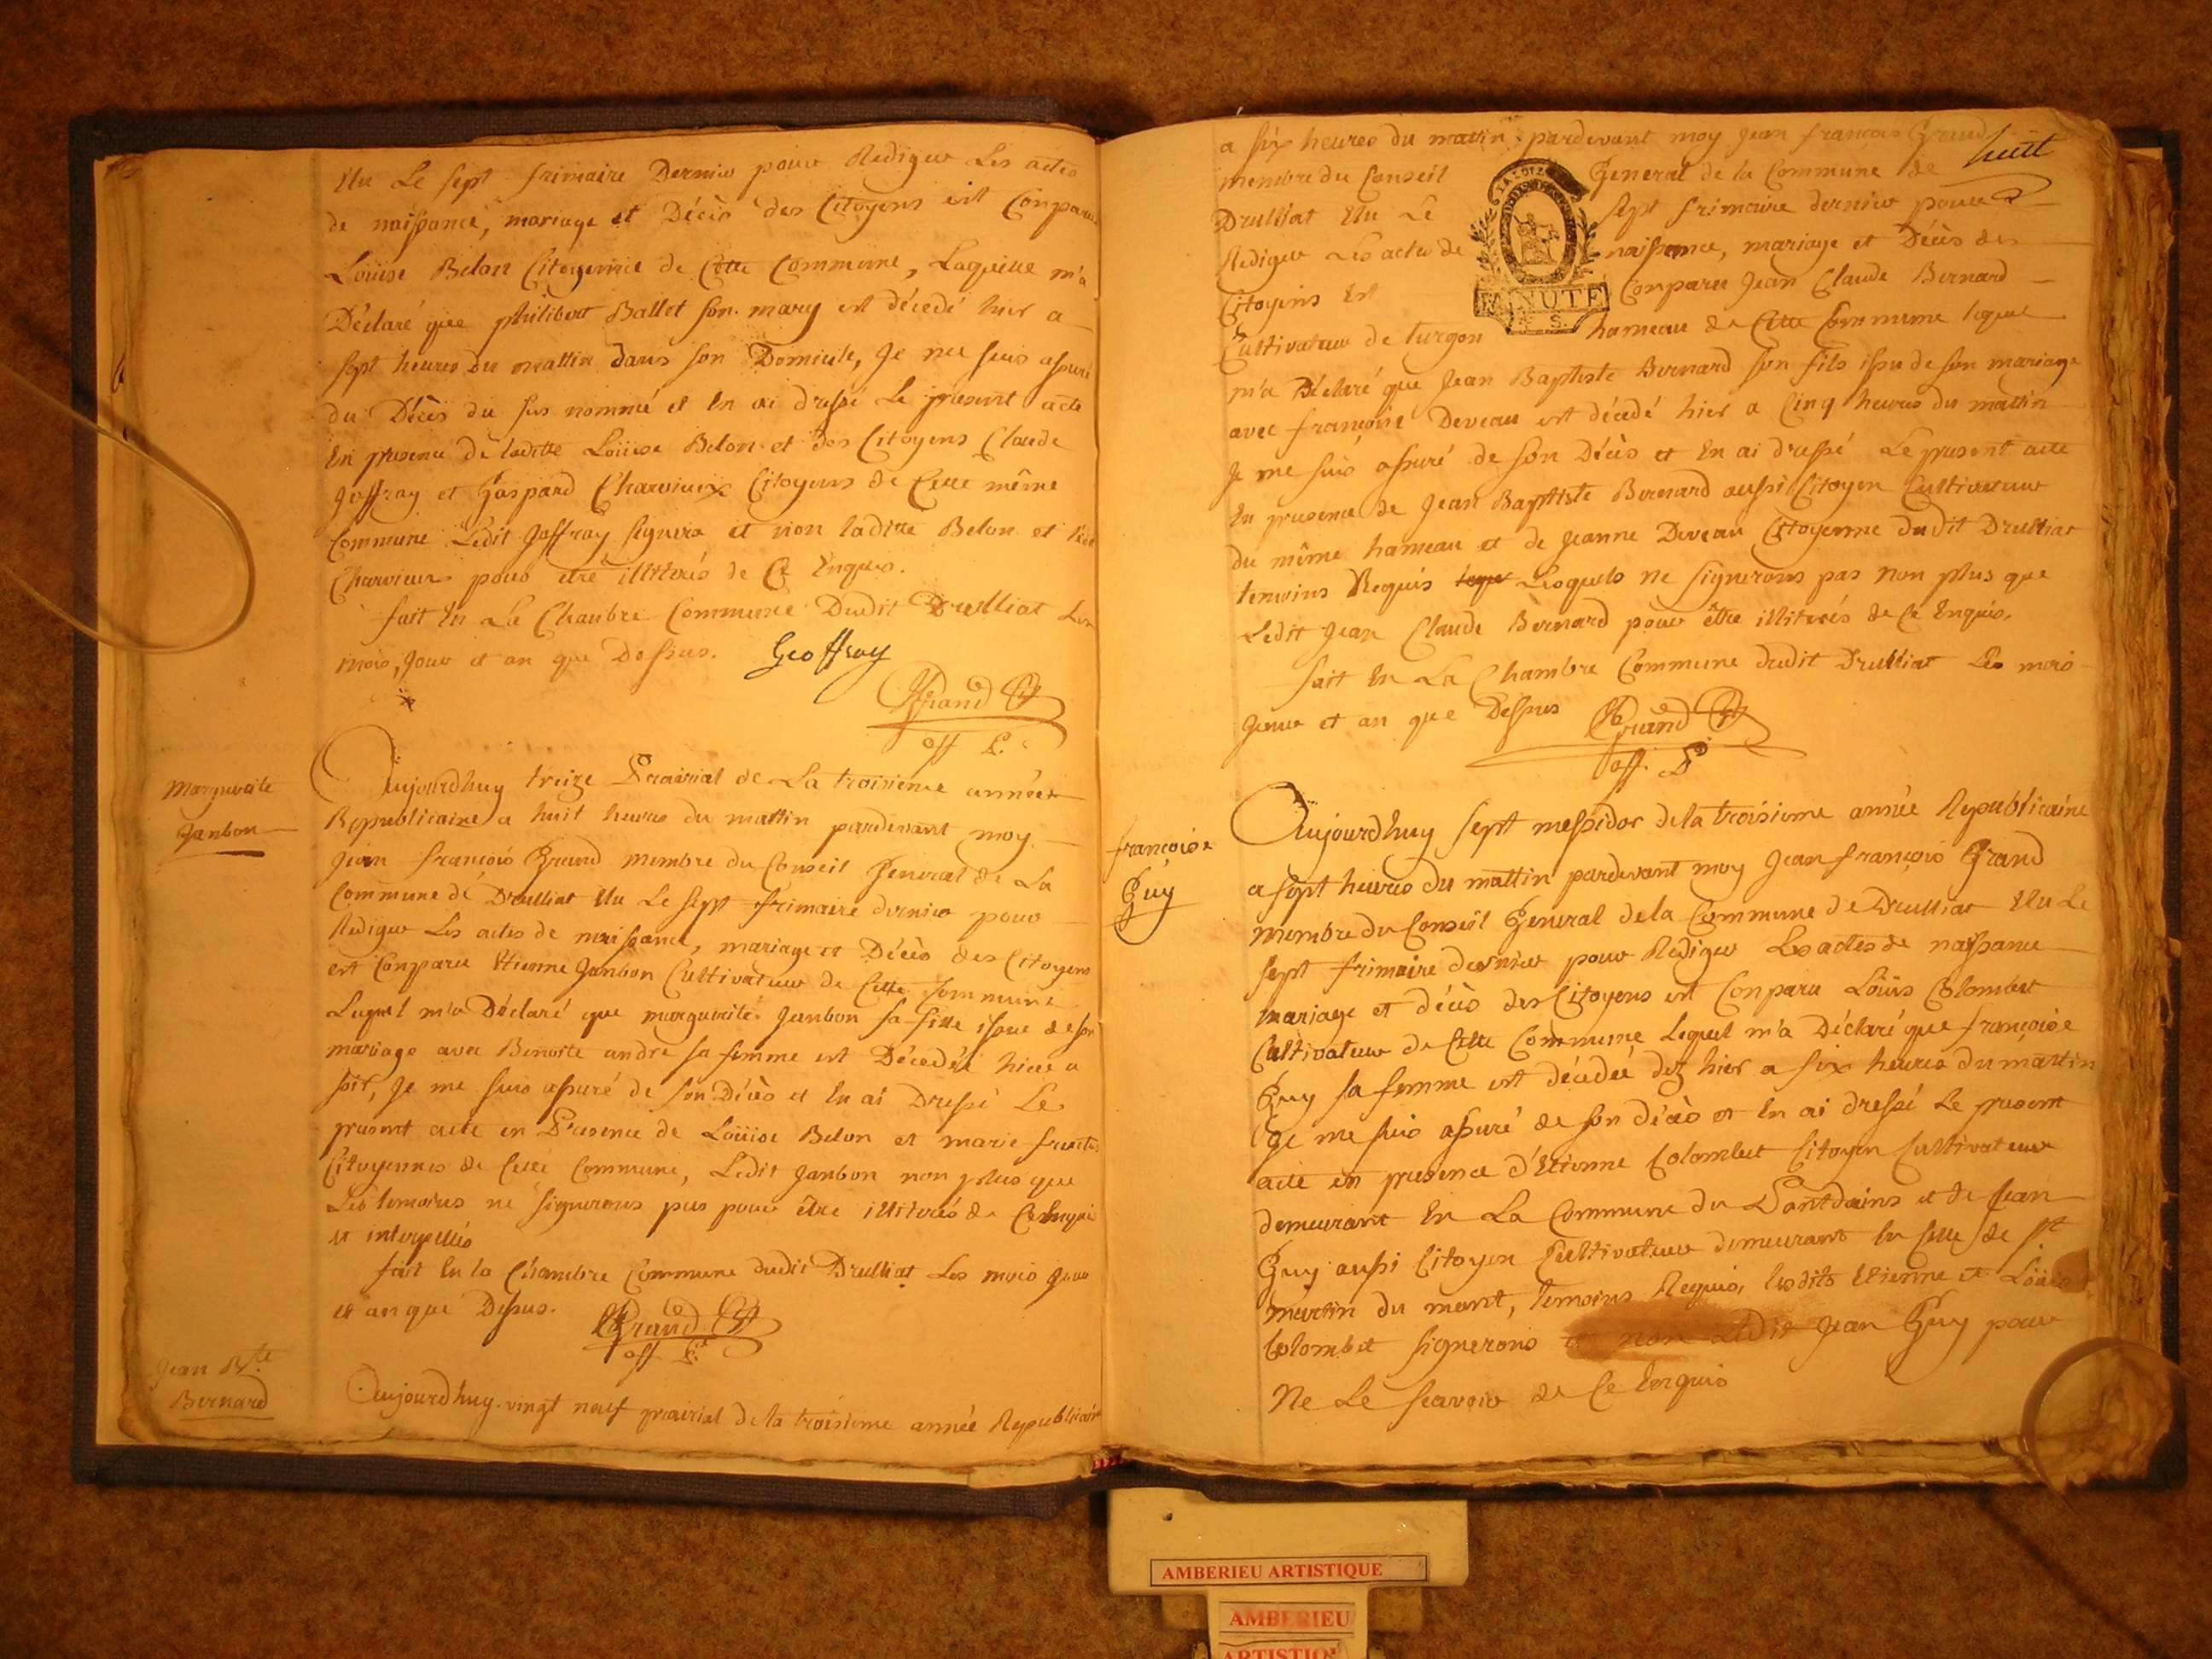 Elu Le sept frimaire Dernier pour Rediger Les actes
de naissance, mariage et Décès des Citoyens est Conparue
Loüise Belon Citoyenne de Cette Commune, Laquelle m'a
Déclaré que philibert Ballet son mary est décedé hier a
sept heures du mattin dans son Domicile, Je me suis assuré
du Décès du sus nommé et En ai dressé Le présent acte
En presence de laditte Loüise Belon et des Citoyens Claude
Joffray et Gaspard Charvieux Citoyens de Cette même
Commune Ledit Joffray signera et non laditte Belon et
Charvieux pour être illiterés de Ce Enquis.
fait En La Chanbre Commune Dudit Drulliat Les
mois, Jour et an que Dessus. Geoffray
Grand
off P.
Marguerite
Janbon
Aujourdhuy treize Prairial de La troisieme année
Republicaine a huit heures du mattin pardevant moy
Jean françois Grand membre du Conseil General de La
Commune de Drulliat Elu Le sept frimaire dernier pour
Rediger Les actes de naissance, mariage et Décès des Citoyens
est Conparu Etienne Janbon Cultivateur de Cette Commune
Lequel m'a Déclaré que marguerite Janbon sa fille issue de son
mariage avec Benoite andré sa femme est Décedée hier a
soir, Je me suis assuré de son Décès et En ai Dressé Le
present acte en Presence de Loüise Belon et marie
Citoyennes de Cette Commune, Ledit Janbon non plus que
Les temoins ne signerons pas pour être illiterés de Ce Enquis
et interpellés
fait En la Chambre Commune dudit Drulliat Les mois Jour
et an que Dessus. Grand
off P.
Jean Bte
Bernard
Aujourdhuy vingt neuf prairial de la troisieme année Republicaine
huit
a six heures du mattin pardevant moy Jean françois Grand
membre du Conseil General de la Commune de
Drulliat Elu Le sept frimaire dernier pour
Rediger Les actes de naissance, mariage et Décès des
Citoyens Est Conparu Jean Claude Bernard
Cultivateur de Turgon hameau de Cette Commune lequel
m'a Déclaré que Jean Baptiste Bernard son fils issu de son mariage
avec françoise Deveau est décedé hier a Cinq heures du mattin
Je me suis assuré de son Décès et En ai dressé Le present acte
En presence de Jean Baptiste Bernard aussi Citoyen Cultivateur
du même hameau et de Jeanne Deveau Citoyenne dudit Drulliat
temoins Requis Lesquels ne signerons pas non plus que
Ledit Jean Claude Bernard pour être illiterés de Ce Enquis.
fait En La Chambre Commune dudit Drulliat Les mois
Jour et an que Dessus Grand
off. P
MINUTE
françoise
Guy
Aujourdhuy sept messidor de la troisieme année Republicaine
a sept heures du mattin pardevant moy Jean françois Grand
membre du Conseil General de la Commune de Drulliat Elu Le
sept frimaire dernier pour Rediger Les actes de naissance
mariage et décès des Citoyens est Conparu Loüis Colombet
Cultivateur de Cette Commune Lequel m'a Déclaré que françoise
Guy sa femme est décedée dez hier a six heures du mattin
Je me suis assuré de son décès et En ai dressé Le present
acte en presence d'Etienne Colombet Citoyen Cultivateur
demeurant En La Commune du Pontdains et de Jean
Guy aussi Citoyen Cultivateur demeurant En Celle de St
martin du mont, temoins Requis, lesdits Etienne et Loüis
Colombet signerons et non ledit Jean Guy pour
Ne Le scavoir de Ce Enquis
AMBERIEU ARTISTIQUE
AMBERIEU
ARTISTIQUE